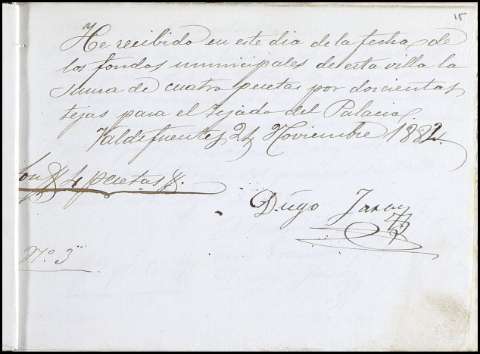 15
He recibido en este dia de la fecha, de
los fondos municipales de esta villa la
suma de cuatro pesetas por doscientas
tejas para el tejado del Palacio.
Valdefuentes 24 Noviembre 1882.
Son 4 pesetas
Diego
Nº 3